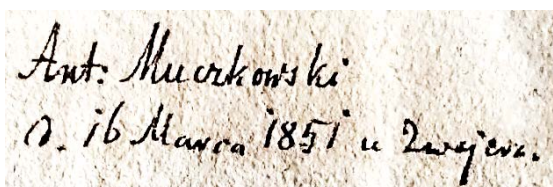 Ant: Muczkowski
d. 16 Marca 1851 u Zwejera.